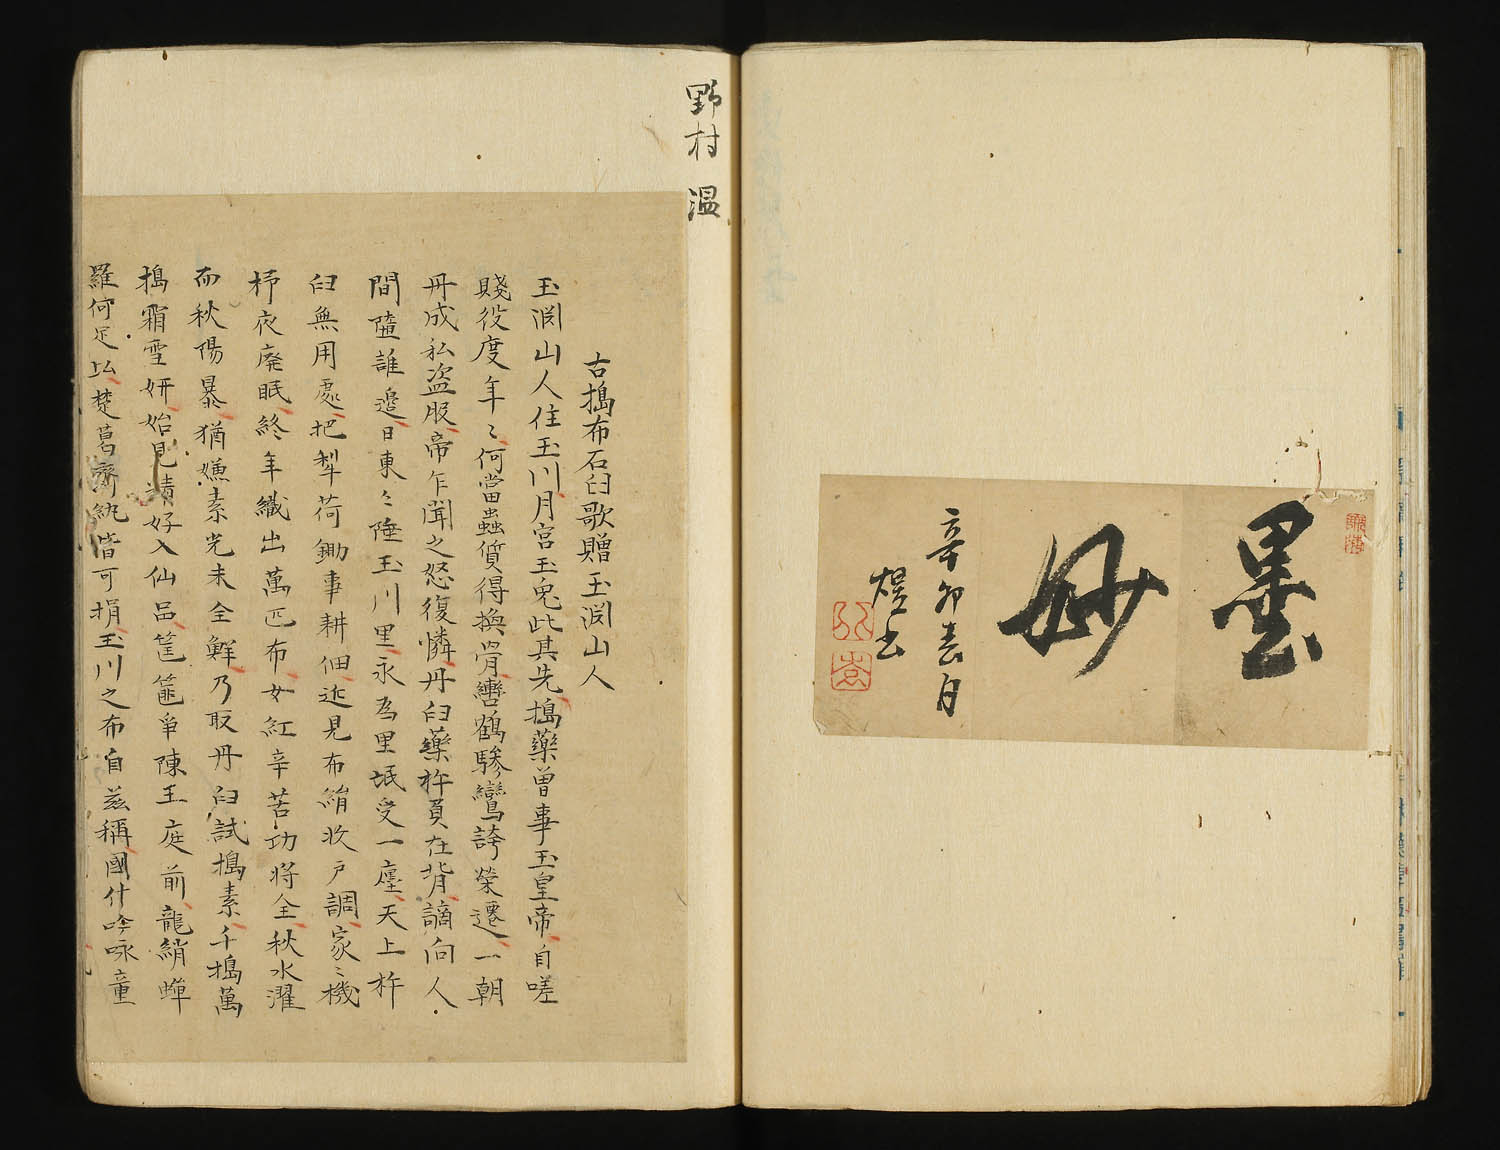 墨妙
辛卯春月
煜書
野村 温
古搗布石臼歌贈玉渕山人
玉渕山人住玉川月宮玉兎此其先搗藥曽事玉皇帝自嗟
賤役度年〻何當蟲質得換骨轡鶴驂鸞誇榮遷一朝
丹成私盗服帝乍聞之怒復憐丹臼藥杵負在背謫向人
間隨誰邉日東〻陲玉川里永為里氓受一廛天上杵
臼無用處把犁荷鋤事耕佃近見布絹收戸調家〻機
杼夜廃眠終年織出萬匹布女紅辛苦功将全秋水濯
而秋陽暴猶嫌素光未全鮮乃取丹臼試搗素千搗萬
搗霜雪妍始見精好入仙品筐篚争陳王庭前龍綃蝉
羅何足比楚葛齊紈皆可捐玉川之布自茲稱國什吟咏童